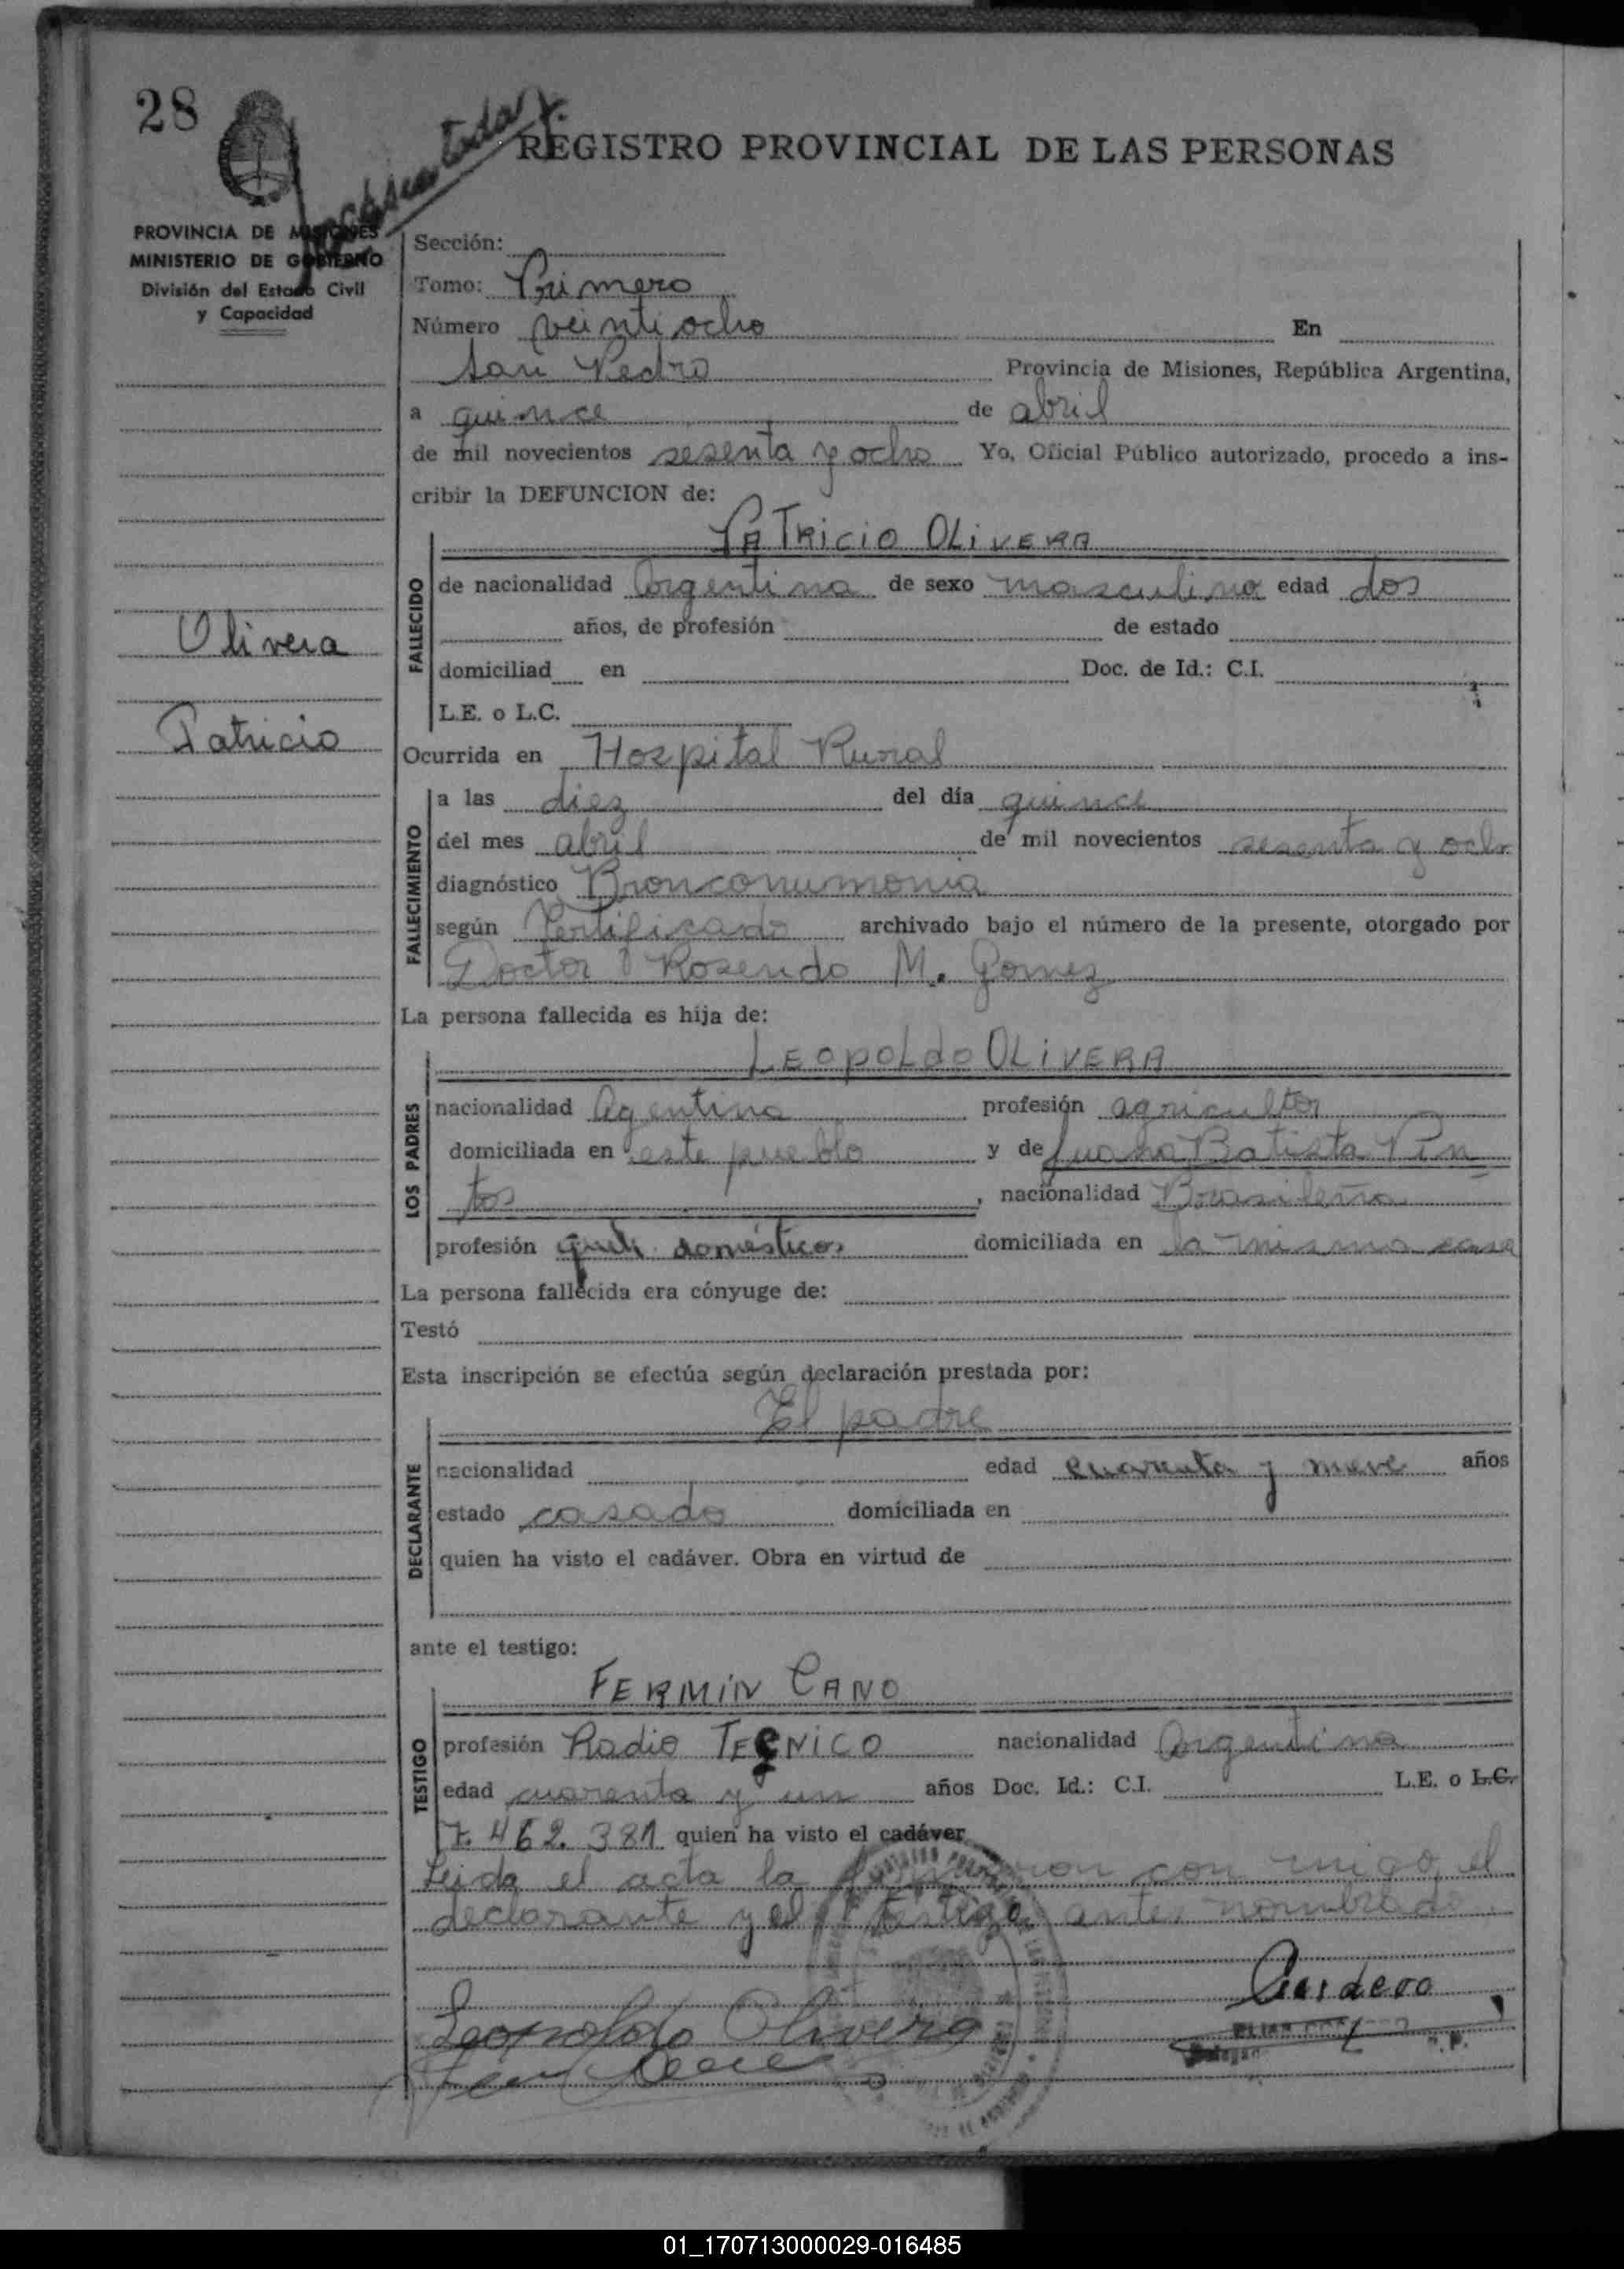 28
REGISTRO PROVINCIAL DE LAS PERSONAS
PROVINCIA DE MISIONES
MINISTERIO DE GOBIERNO
División del Estado Civil
y Capacidad
Sección:
Tomo: Primero
Número veintiocho En
San Pedro Provincia de Misiones, República Argentina,
a quince de abril
de mil novecientos sesenta y ocho Yo, Oficial Público autorizado, procedo a ins-
cribir la DEFUNCION de:
PATRICIO OLIVERA
FALLECIDO
de nacionalidad Argentina de sexo masculino edad dos
años, de profesión de estado
Olivera
domiciliad en Doc. de Id.: C.I.
L.E. o L.C.
Patricio
Ocurrida en Hospital Rural
FALLECIMIENTO
a las diez del día quince
del mes abril de mil novecientos sesenta y ocho
diagnóstico Bronconumonia
según Certificado archivado bajo el número de la presente, otorgado por
Doctor Rosendo M. Gomez
La persona fallecida es hija de:
LEOPOLDO OLIVERA
LOS PADRES
nacionalidad Agentina profesión agricultor
domiciliada en este pueblo y de Juana Batista Pin
tos, nacionalidad Brasileña
profesión queh. domésticos domiciliada en la misma casa
La persona fallecida era cónyuge de:
Testó
Esta inscripción se efectúa según declaración prestada por:
El padre
DECLARANTE
nacionalidad edad cuarenta y nueve años
estado casado domiciliada en
quien ha visto el cadáver. Obra en virtud de
ante el testigo:
FERMIN CANO
TESTIGO
profesión Radio TECNICO nacionalidad Argentina
edad cuarenta y un años Doc. Id.: C.I. L.E. o L.C.
7.462.381 quien ha visto el cadáver
Leida el acta la firmaron con migo, el
declarante y el testigo antes nombrado.
Leopoldo Olivera
01_170713000029-016485